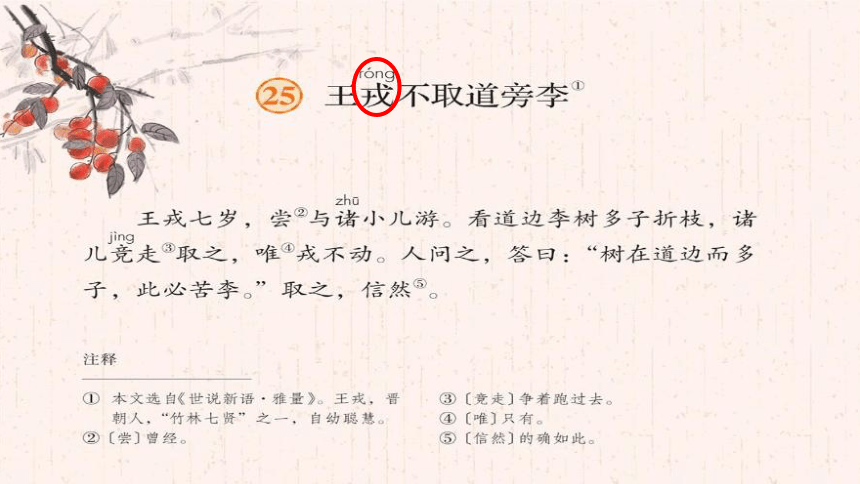 róng
25 王戎不取道旁李①
zhū
王戎七岁，尝②与诸小儿游。看道边李树多子折枝，诸
jìng
儿竞走③取之，唯④戎不动。人问之，答曰：“树在道边而多
子，此必苦李。”取之，信然⑤。
注释
① 本文选自《世说新语·雅量》。王戎，晋
朝人，“竹林七贤”之一，自幼聪慧。
②〔尝〕曾经。
③〔竞走〕争着跑过去。
④〔唯〕只有。
⑤〔信然〕的确如此。